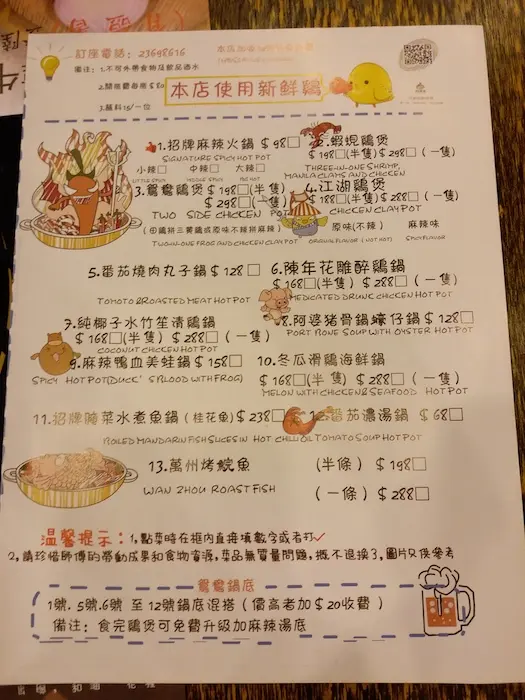 訂座電話：23698616
備注：1.不可外帶食物及飲品酒水
3.蘸料15/一位
本店使用新鮮鷄
1.招牌麻辣火鍋 $ 98□
SIGNATURE SPICY HOT POT
小辣□ 中辣□ 大辣□
2.蝦蜆鷄煲
$ 198□(半隻) $ 298□ ( 一隻)
THREE-IN-ONE SHRIMP,
MANILA CLAMS AND CHICKEN
3.鴛鴦鷄煲 $ 198□(半隻)
$ 298□ ( 一隻)
TWO SIDE CHICKEN POT
(田鷄拼三黄鷄或原味不辣拼麻辣)
TWO-IN-ONE FROG AND CHICKEN CLAY POT
4.江湖鷄煲
$ 188□(半隻) $ 288□ ( 一隻)
CHICKEN CLAY POT
原味(不辣) 麻辣味
ORIGINAL FLAVOR ( NOT HOT) SPICY FLAVOR
5.番茄燒肉丸子鍋 $ 128 □
TOMATO & ROASTED MEAT HOT POT
6.陳年花雕醉鷄鍋
$ 168□(半隻) $ 288□ ( 一隻)
MEDICATED DRUNK CHICKEN HOT POT
7.純椰子水竹笙清鷄鍋
$ 168□(半隻) $ 288□ ( 一隻)
COCONUT CHICKEN HOT POT
8.阿婆猪骨鍋蠔仔鍋 $ 128□
PORT BONE SOUP WITH OYSTER HOT POT
9.麻辣鴨血美蛙鍋 $ 158□
SPICY HOT POT(DUCK' S BLOOD WITH FROG)
10.冬瓜滑鷄海鮮鍋
$ 168□(半隻) $ 288□ ( 一隻)
MELON WITH CHICKEN & SEAFOOD HOT POT
11.招牌醃菜水煮魚鍋 ( 桂花魚) $ 238□
BOILED MANDARIN FISH SLICES IN HOT CHILI OIL
12.番茄濃湯鍋 $ 68□
TOMATO SOUP HOT POT
13.萬州烤鯇魚 (半條) $ 198□
WAN ZHOU ROAST FISH (一條) $ 288□
溫馨提示：1,點菜時在框内直接填數字或者打✓
2,請珍惜師傅的勞動成果和食物資源,菜品無質量問題,概不退換了,圖片只供參考
鴛鴦鍋底
1號. 5號.6號 至 12號鍋底混搭 ( 價高者加 $ 20收費 )
備注：食完鷄煲可免費升級加麻辣湯底